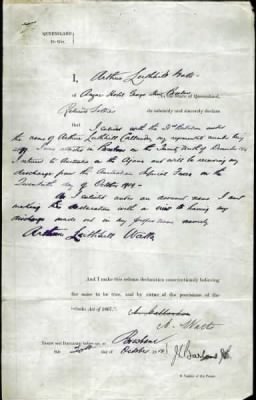 QUEENSLAND
TO WIT.
I, Arthur Luthhill Watts
of Anzac Hostel George Street
State of Queensland,
Returned Soldier
do solemnly and sincerely declare
that I enlisted with the Battalion under
the name of Arthur Luthhill my regimental number being
I was enlisted in Brisbane on the Twenty Ninth of December
I returned to Australia on the and will be receiving my
discharge from the Australian Imperial Force on the
Twentieth day of October 1919.
As I enlisted under an assumed name I am
making this declaration with a view to having my
discharge made out in my proper name namely
Arthur Luthhill Watts
And I make this solemn declaration conscientiously believing
the same to be true, and by virtue of the provisions of the
Oaths Act of 1867.
A. Watts
TAKEN and DECLARED before me, at Brisbane
this 20th day of October 19
A Justice of the Peace.